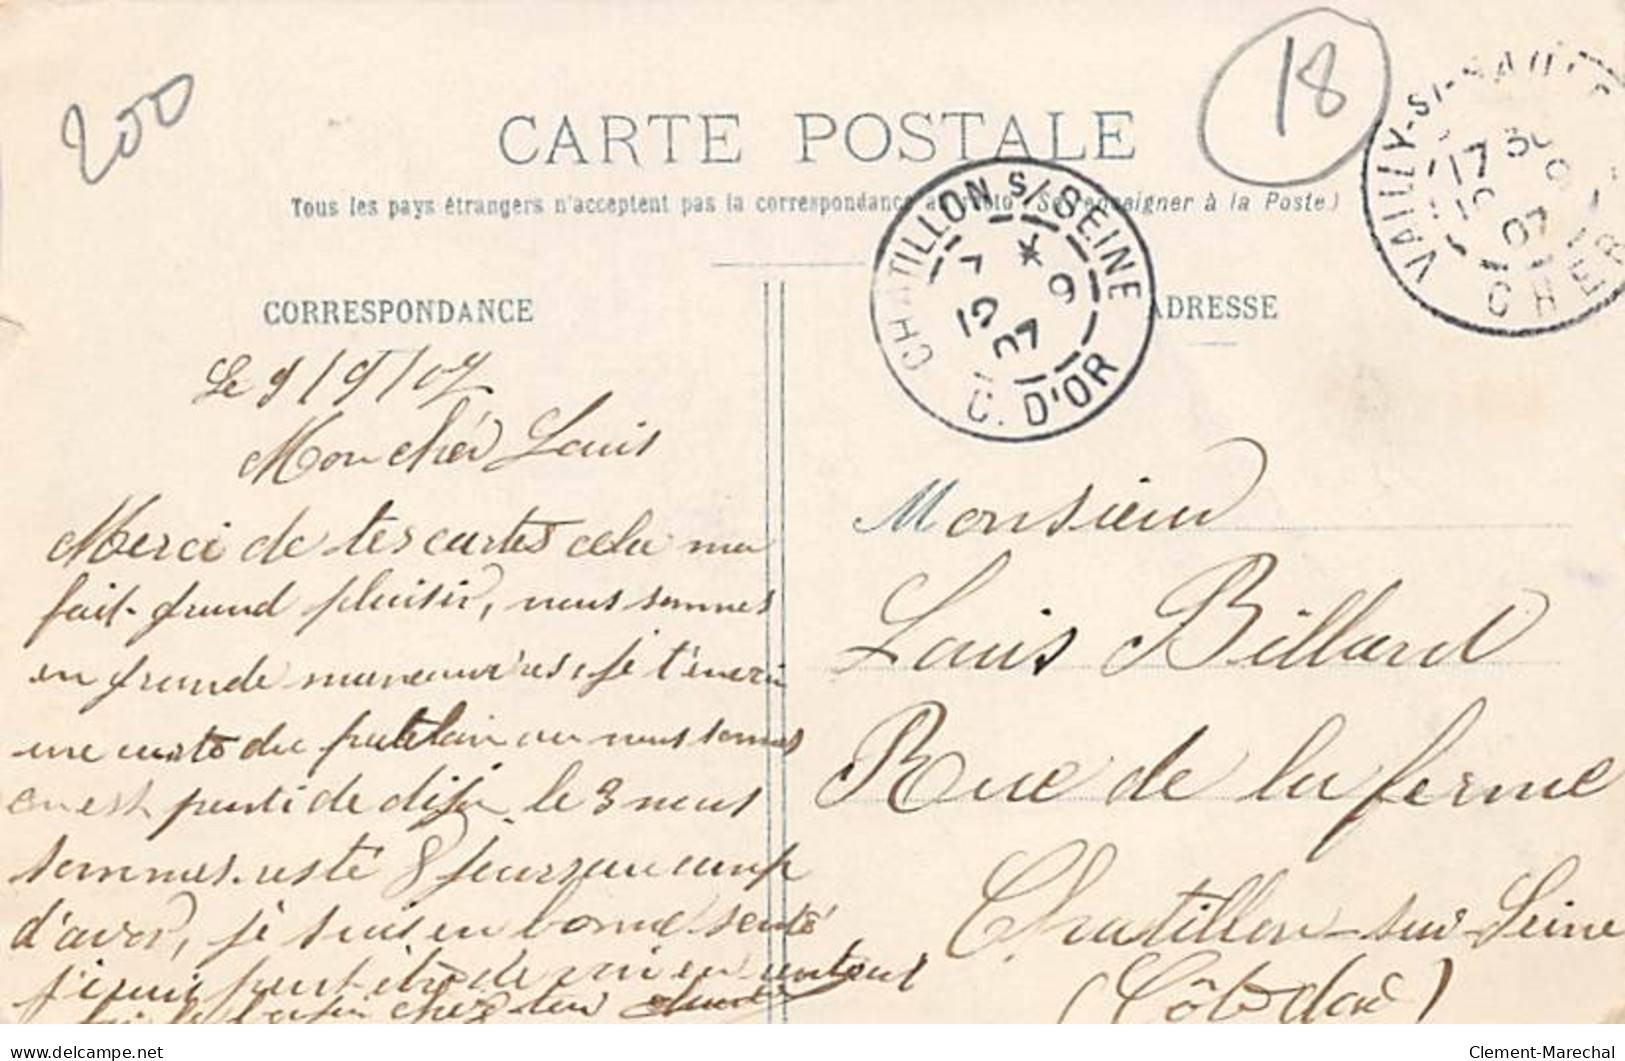 200
18
CARTE POSTALE
Tous les pays étrangers n'acceptent pas la correspondance au recto (Se renseigner à la Poste)
VAILLY-S/-SAULDRE
17 30
10 9
07
CHER
CHATILLON S/ SEINE
7 * 
10 9
07
C. D'OR
CORRESPONDANCE
ADRESSE
Le 9/9/07
Mon cher Louis
Merci de tes cartes cela ma
fait grand plaisir, nous sommes
en grande manoeuvres, je t'envoi
une carte du patelain ou nous sommes
on est parti de dijon le 3 nous
sommes resté 8 jours au camp
d'avor, je suis en bonne santé
j'irai peut être de voir en
chez ton
Monsieur
Louis Billard
Rue de la ferme
Chatillon-sur-Seine
(Côte dor)
delcampe.net
Clement-Marechal